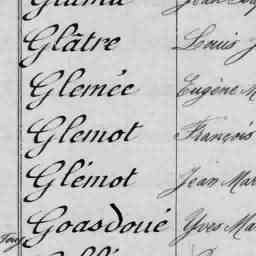 Glâtre Louis
Glemée Eugène M
Glemot François
Glémot Jean Mar
Goasdoué Yves Ma